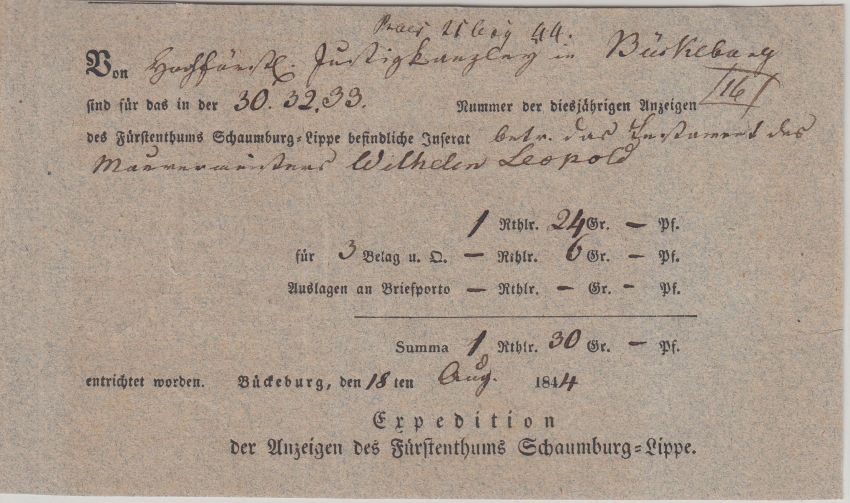 Praes 21 Aug 44.
Von Hochfürstl. Justizkanzley in Bückeburg
16
sind für das in der 30. 32. 33. Nummer der diesjährigen Anzeigen
des Fürstenthums Schaumburg-Lippe befindliche Inserat betr. das Testament des
Maurermeisters Wilhelm Leopold
1 Rthlr. 24 Gr. – Pf.
für 3 Belag u. Q. – Rthlr. 6 Gr. – Pf.
Auslagen an Briefporto – Rthlr. – Gr. – Pf.
Summa 1 Rthlr. 30 Gr. – Pf.
entrichtet worden. Bückeburg, den 18ten Aug. 1844
Expedition
der Anzeigen des Fürstenthums Schaumburg-Lippe.